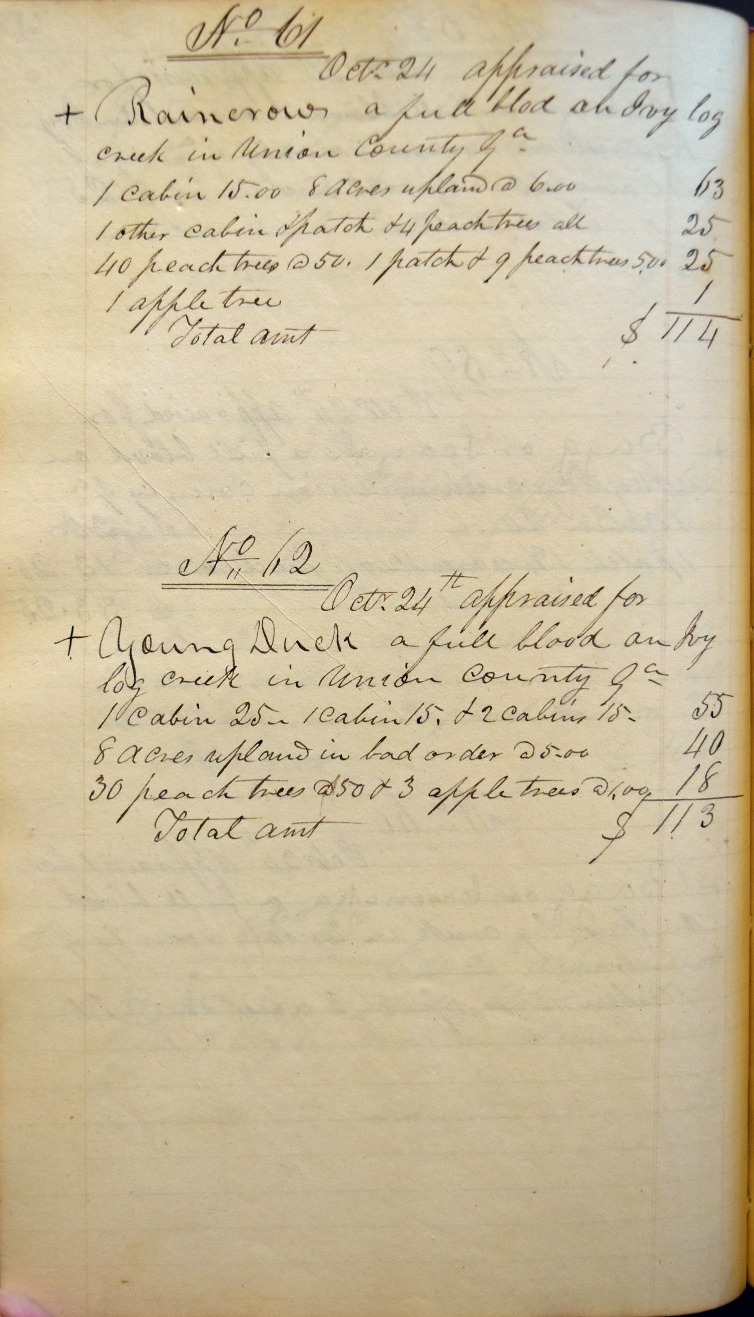 No. 61
Octr. 24 appraised for
+ Raincrow a full blod on Ivy log
creek in Union County Ga
1 cabin 15.00 8 Acres upland @ 6.00 63
1 other cabin & patch & 4 peach trees all 25
40 peach trees @ 50. 1 patch & 9 peach trees 5.00 25
1 apple tree 1
Total amt $ 114
No. 62
Octr. 24th appraised for
+ Young Duck a full blood on Ivy
log creek in Union County Ga
1 cabin 25- 1 cabin 15. & 2 cabins 15- 55
8 Acres upland in bad order @ 5.00 40
30 peach trees @ 50 & 3 apple trees @ 1.00 18
Total amt $ 113